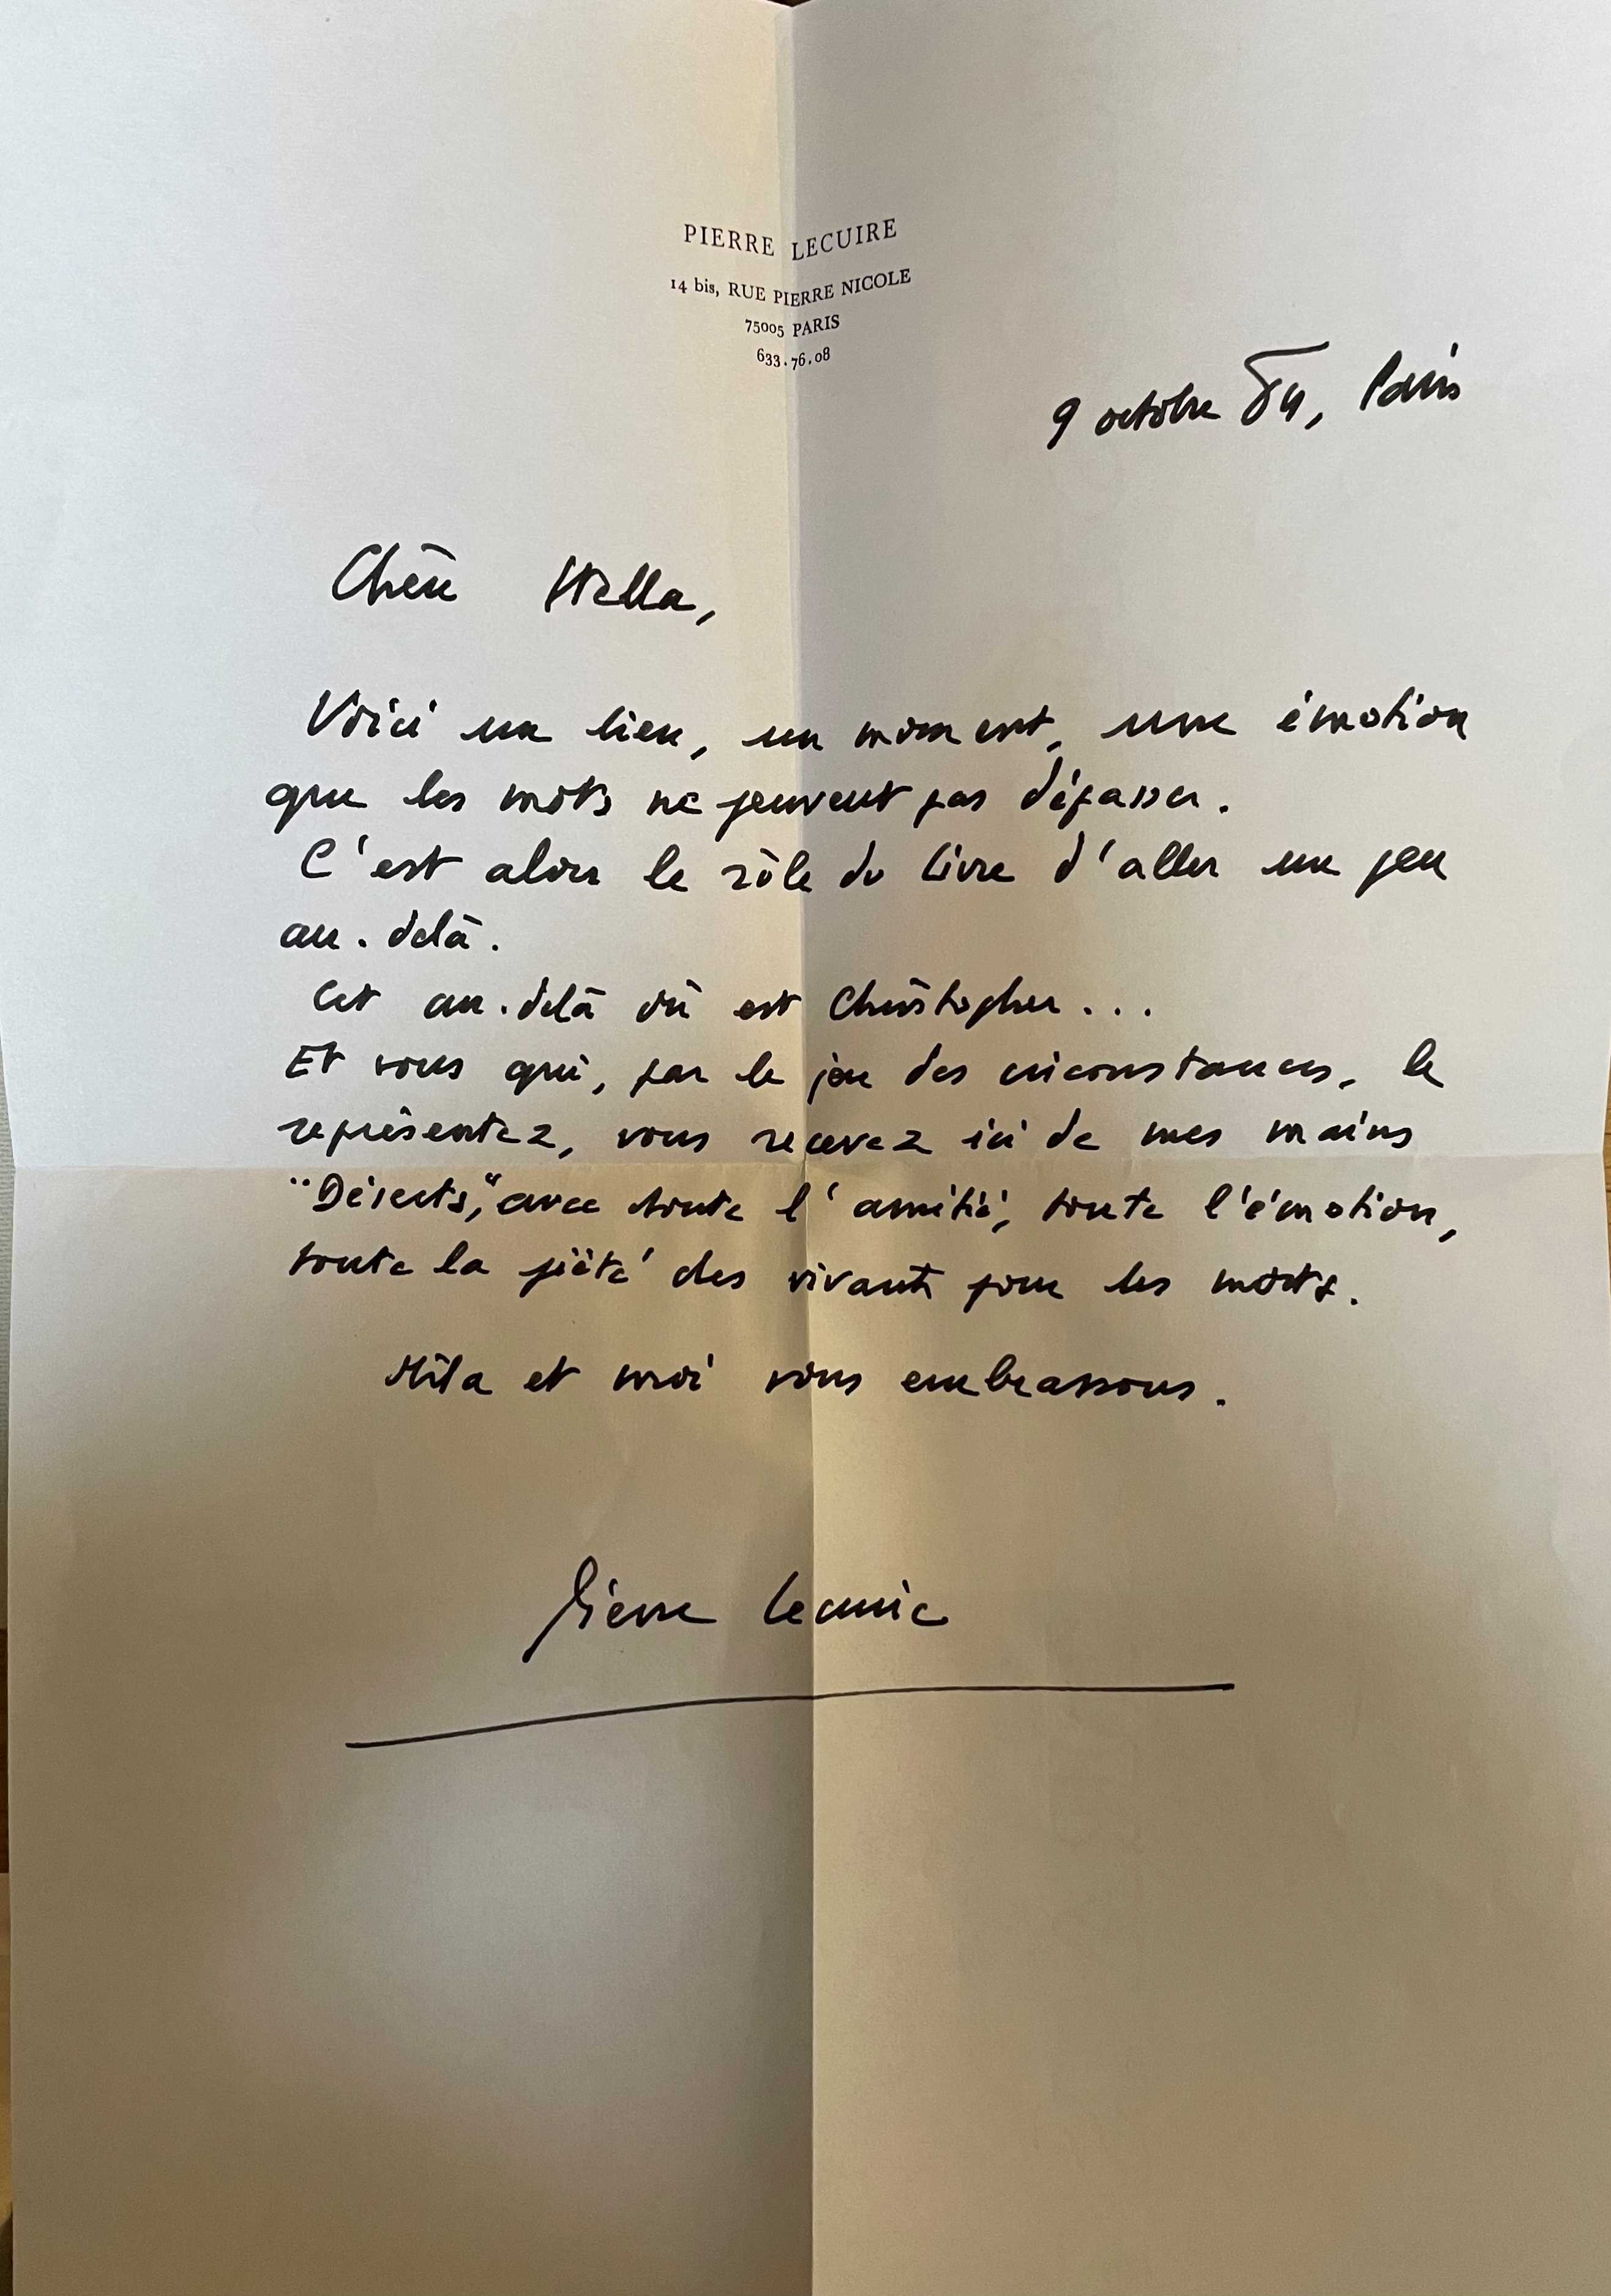 PIERRE LECUIRE
14 bis, RUE PIERRE NICOLE
75005 PARIS
633.76.08
9 octobre 84, Paris
Chère Stella,
Voici un lieu, un moment, une émotion
que les mots ne peuvent pas dépasser.
C'est alors le rôle du Livre d'aller un peu
au-delà.
Cet au-delà où est Christopher...
Et vous qui, par le jeu des circonstances, le
représentez, vous recevez ici de mes mains
"Déserts," avec toute l'amitié, toute l'émotion,
toute la piété des vivants pour les morts.
Mila et moi vous embrassons.
Pierre Lecuire